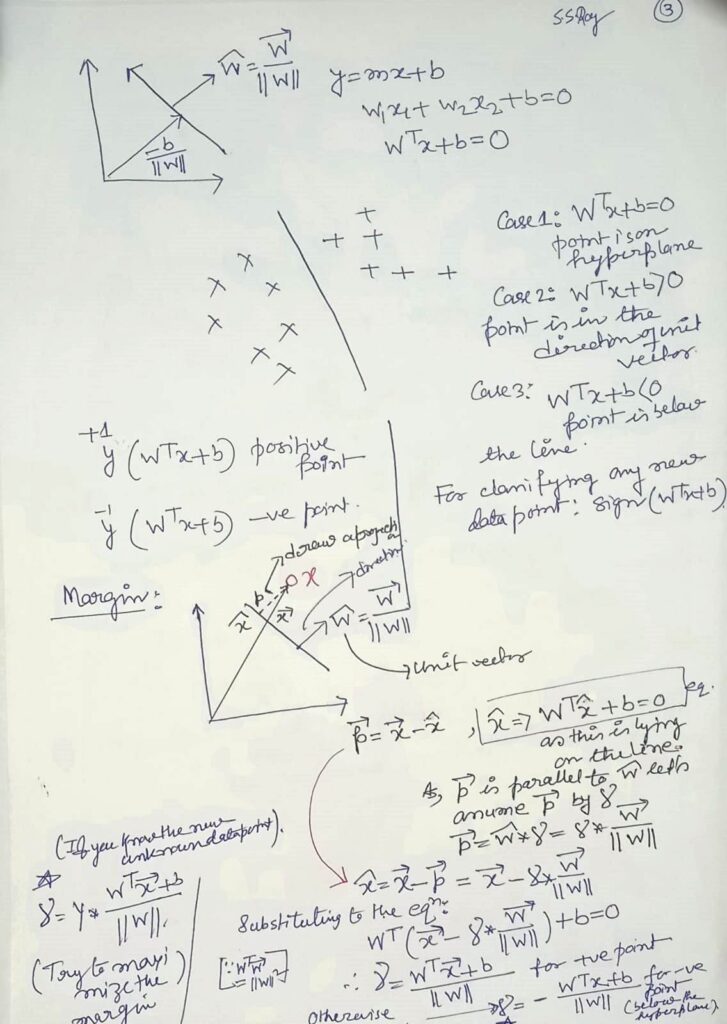 S.S.Roy
3
ŵ = w⃗ / ||w||
y = mx + b
w₁x₁ + w₂x₂ + b = 0
wᵀx + b = 0
-b / ||w||
Case 1: wᵀx + b = 0
point is on
hyperplane
Case 2: wᵀx + b > 0
point is in the
direction of unit
vector.
Case 3: wᵀx + b < 0
point is below
the line.
For classifying any new
data point: sign(wᵀx + b)
+1
y (wᵀx + b) positive
point
-1
y (wᵀx + b) -ve point.
draw a
direction
Margin:
p
x
x̂
x⃗
ŵ = w⃗ / ||w||
unit vector
p⃗ = x⃗ - x̂, x̂ => wᵀx̂ + b = 0 eq.
as this is lying
on the line.
As, p⃗ is parallel to ŵ let's
assume p⃗ by γ
p⃗ = ŵ * γ = γ * w⃗ / ||w||
(If you know the new
unknown datapoint).
x̂ = x⃗ - p⃗ = x⃗ - γ * w⃗ / ||w||
γ = y * (wᵀx⃗ + b) / ||w||.
Substituting to the eqⁿ:
wᵀ(x⃗ - γ * w⃗ / ||w||) + b = 0
[∵ wᵀw⃗
= ||w||²]
∴ γ = (wᵀx⃗ + b) / ||w|| for +ve point
(Try to maxi
mize the
margin
otherwise γ = - (wᵀx + b) / ||w|| for -ve
point
(below the
hyperplane).